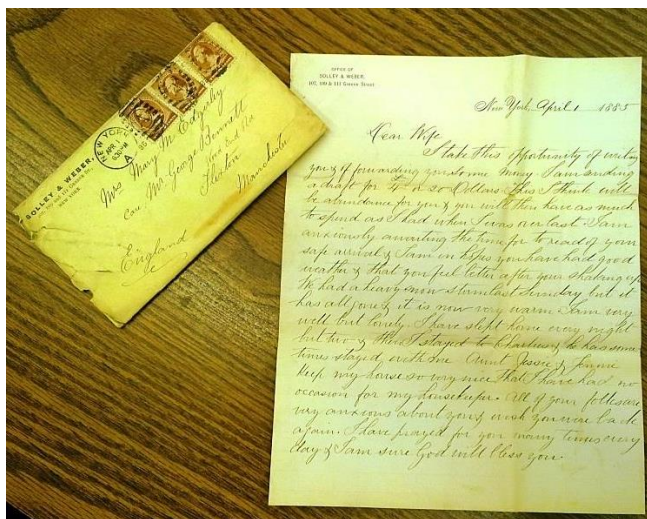 SOLLEY & WEBER,
NEW YORK.
NEW YORK
APR
630 PM
85
A
Mrs Mary M Edgerley
Care Mr. George Bennett
End Rd
Flixton
Manchester
England
OFFICE OF
SOLLEY & WEBER,
107, 109 & 111 Greene Street
New York, April 1 1885
Dear Wife
I take this oppotunity of writing
you & of forwarding you some money I am sending
a draft for or 50 Dollars this I think will
be abundance for you & you will then have as much
to spend as I had when I was over last. I am
anxiously awaiting the time for to read of your
safe arrival & I am in hopes you have had good
weather & that you feel better after your shaking up
We had a heavy snow storm last Sunday but it
has all gone & it is now very warm. I am very
well but lonely I have slept home every night
but two & then I stayed to Charlies & he has some
times stayed with me Aunt Jessie &
keep my house so very nice that I have had no
occasion for my housekeeper. All of your folks are
very anxious about you & wish you were back
again. I have prayed for you many times every
day & I am sure God will bless you.